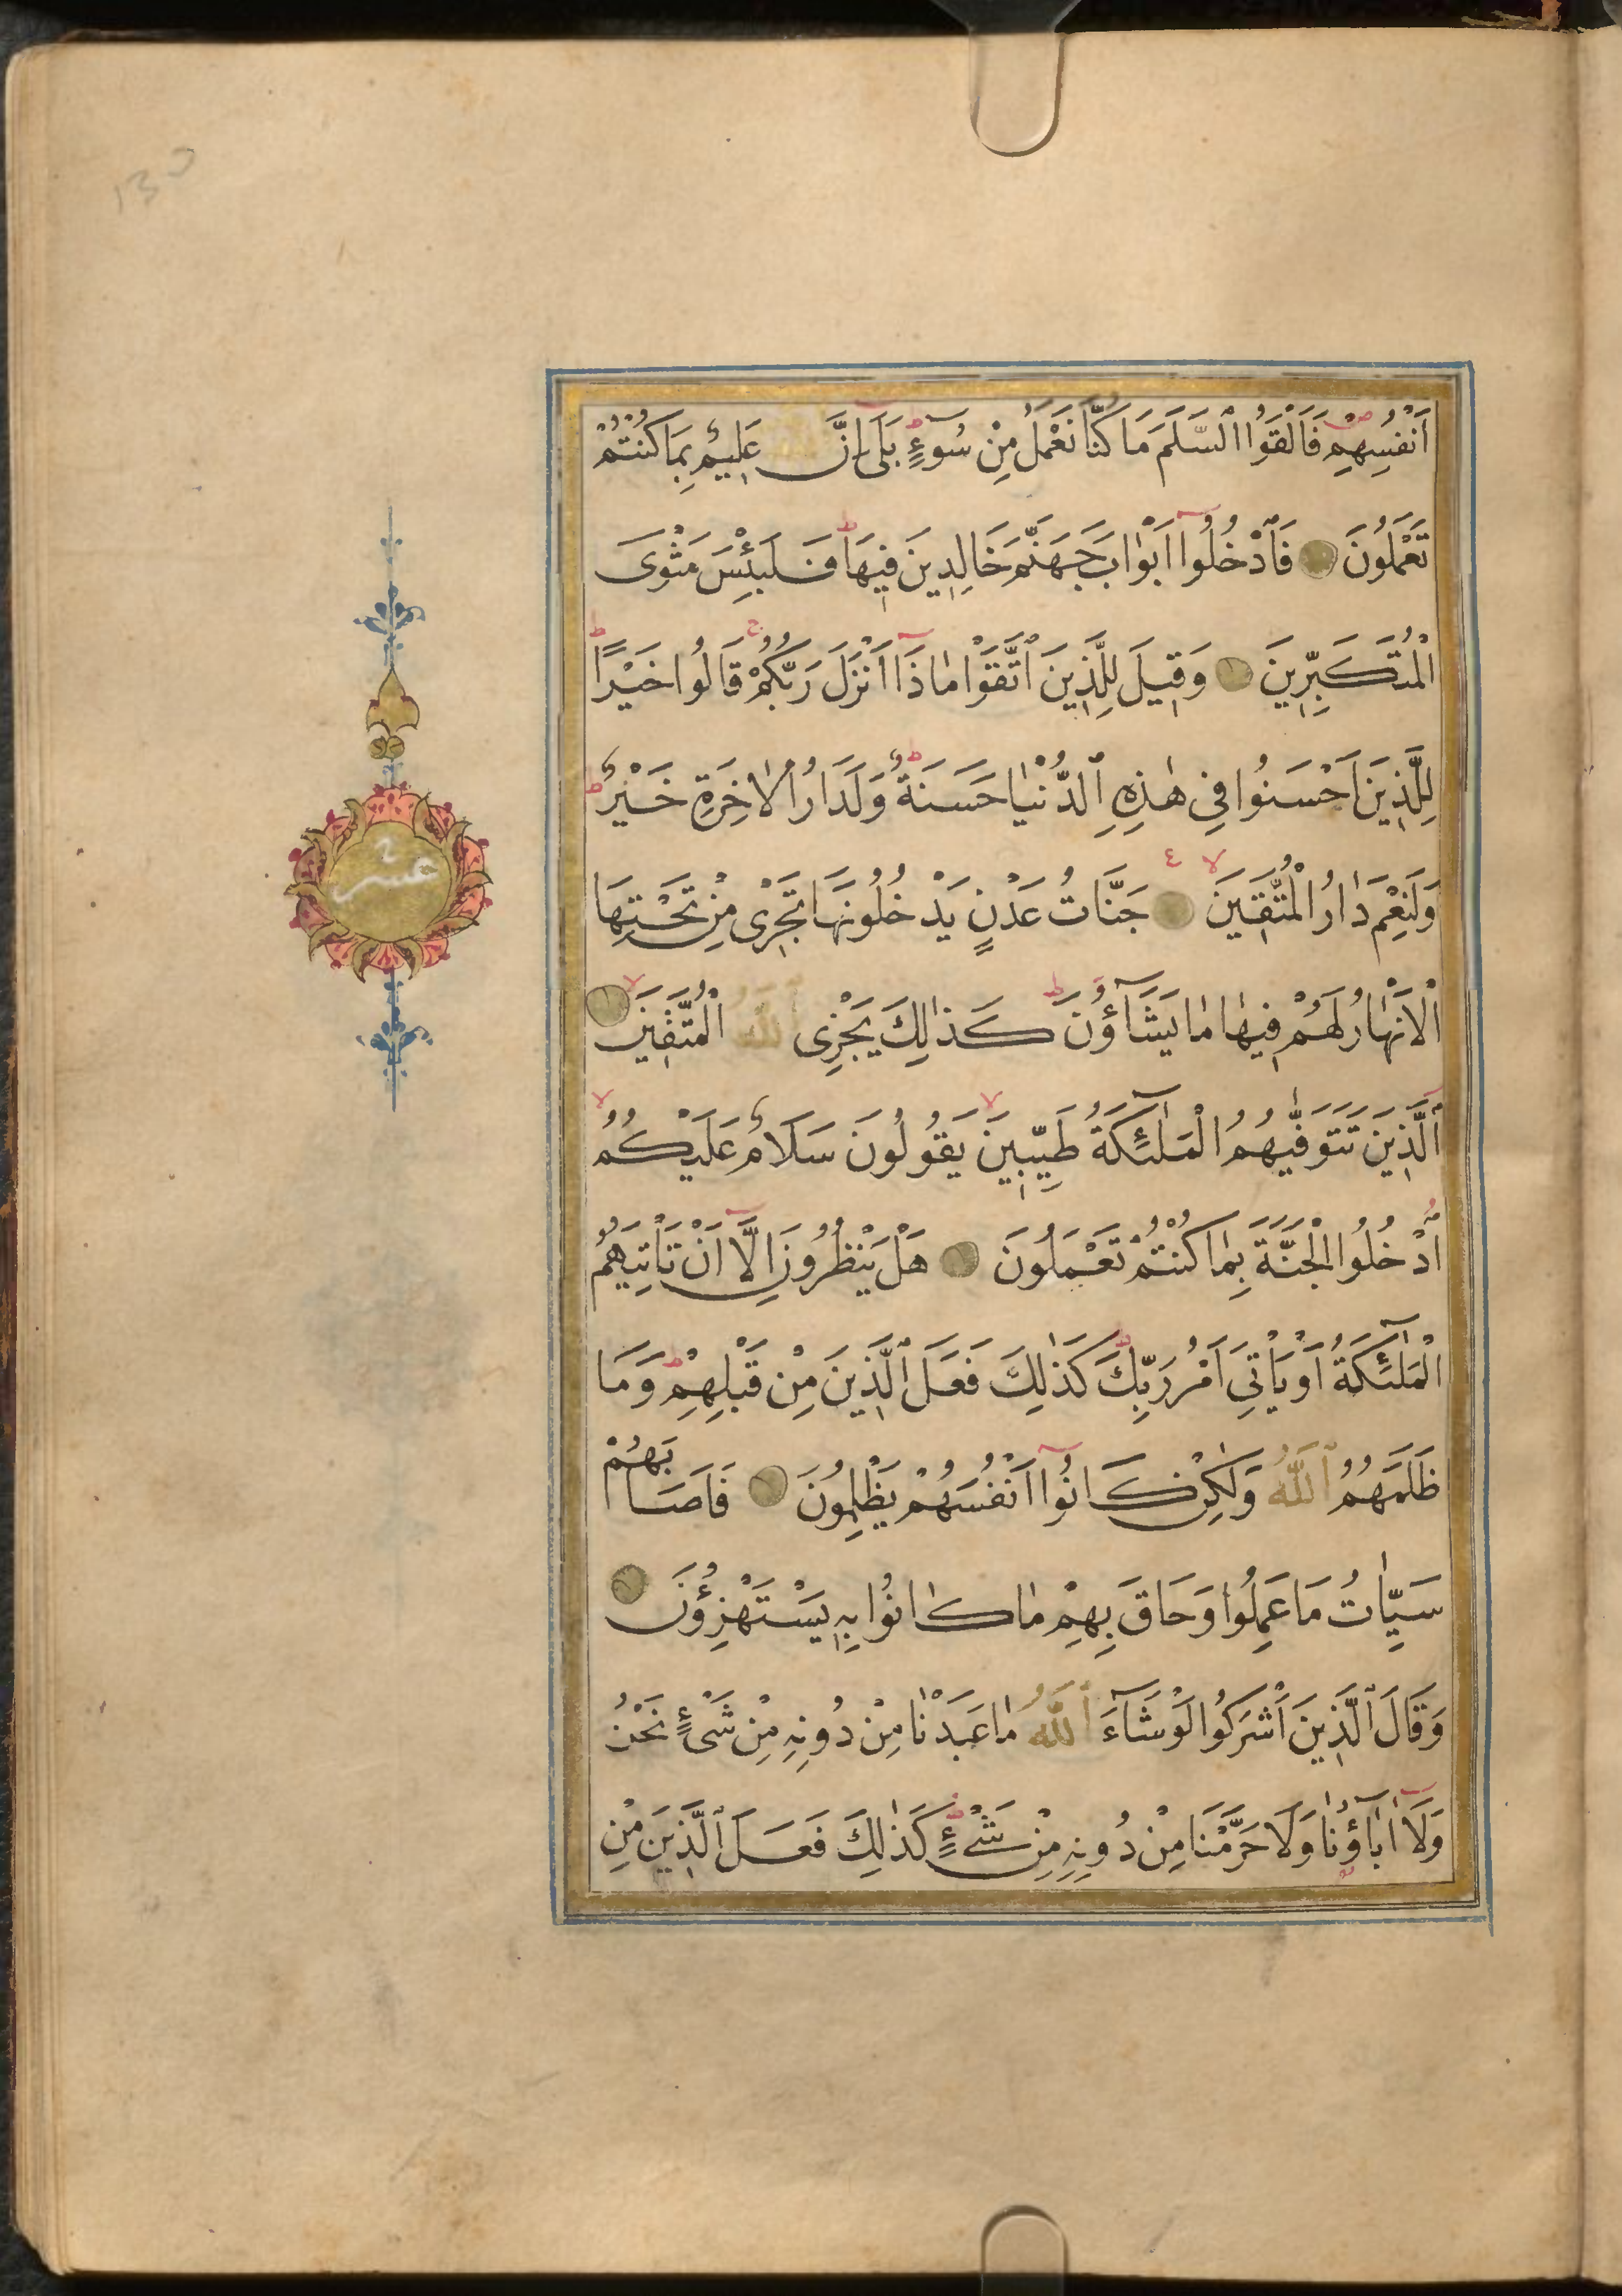 130
اَنْفُسِهِمْ فَاَلْقَوُا السَّلَمَ مَا كُنَّا نَعْمَلُ مِنْ سُوٓءٍ بَلٰى اِنَّ اللّٰهَ عَلِيمٌ بِمَا كُنْتُمْ
تَعْمَلُونَ فَادْخُلُوٓا اَبْوَابَ جَهَنَّمَ خَالِدِينَ فِيهَا فَلَبِئْسَ مَثْوَى
الْمُتَكَبِّرِينَ وَقِيلَ لِلَّذِينَ اتَّقَوْا مَاذَٓا اَنْزَلَ رَبُّكُمْ قَالُوا خَيْرًا
لِلَّذِينَ اَحْسَنُوا فِى هٰذِهِ الدُّنْيَا حَسَنَةٌ وَلَدَارُ الْاٰخِرَةِ خَيْرٌ
وَلَنِعْمَ دَارُ الْمُتَّقِينَ جَنَّاتُ عَدْنٍ يَدْخُلُونَهَا تَجْرِى مِنْ تَحْتِهَا
الْاَنْهَارُ لَهُمْ فِيهَا مَا يَشَٓاؤُنَ كَذٰلِكَ يَجْزِى اللّٰهُ الْمُتَّقِينَ
اَلَّذِينَ تَتَوَفّٰيهُمُ الْمَلٰٓئِكَةُ طَيِّبِينَ يَقُولُونَ سَلَامٌ عَلَيْكُمُ
ادْخُلُوا الْجَنَّةَ بِمَا كُنْتُمْ تَعْمَلُونَ هَلْ يَنْظُرُونَ اِلَّٓا اَنْ تَاْتِيَهُمُ
الْمَلٰٓئِكَةُ اَوْ يَاْتِىَ اَمْرُ رَبِّكَ كَذٰلِكَ فَعَلَ الَّذِينَ مِنْ قَبْلِهِمْ وَمَا
ظَلَمَهُمُ اللّٰهُ وَلٰكِنْ كَانُوٓا اَنْفُسَهُمْ يَظْلِمُونَ فَاَصَابَهُمْ
سَيِّاٰتُ مَا عَمِلُوا وَحَاقَ بِهِمْ مَا كَانُوا بِهِ يَسْتَهْزِؤُنَ
وَقَالَ الَّذِينَ اَشْرَكُوا لَوْ شَٓاءَ اللّٰهُ مَا عَبَدْنَا مِنْ دُونِهِ مِنْ شَىْءٍ نَحْنُ
وَلَٓا اٰبَٓاؤُنَا وَلَا حَرَّمْنَا مِنْ دُونِهِ مِنْ شَىْءٍ كَذٰلِكَ فَعَلَ الَّذِينَ مِنْ
عشر